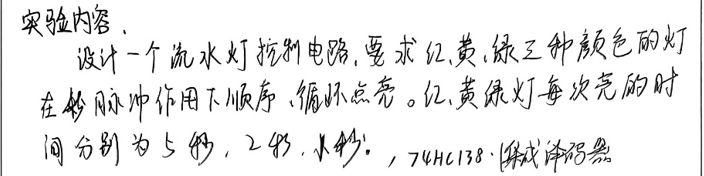 实验内容.
设计一个流水灯控制电路,要求红、黄、绿三种颜色的灯
在秒脉冲作用下顺序、循环点亮。红、黄绿灯每次亮的时
间分别为5秒,2秒, 秒。,74HC138·集成译码器